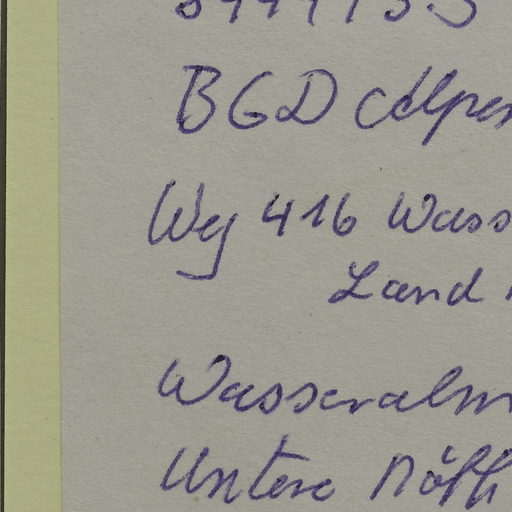 BGD Alpen
Weg 416 Wass
Land
Wasseralm
Untere Röth